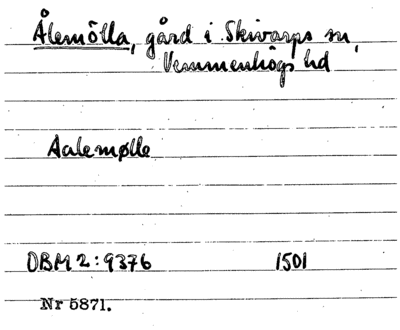 Ålemölla, gård i Skivarps sn,
Vemmenhögs hd
Aalemølle
OBM 2:9376 1501
Nr 5871.